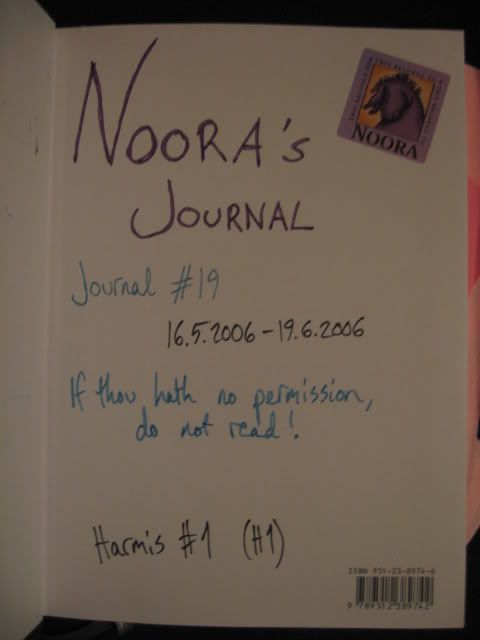 NOORA's
JOURNAL
NOORA
Journal #19
16.5.2006-19.6.2006
If thou hath no permission,
do not read!
Harmis #1 (H1)
ISBN 951-23-8974-6
9 789512 389742